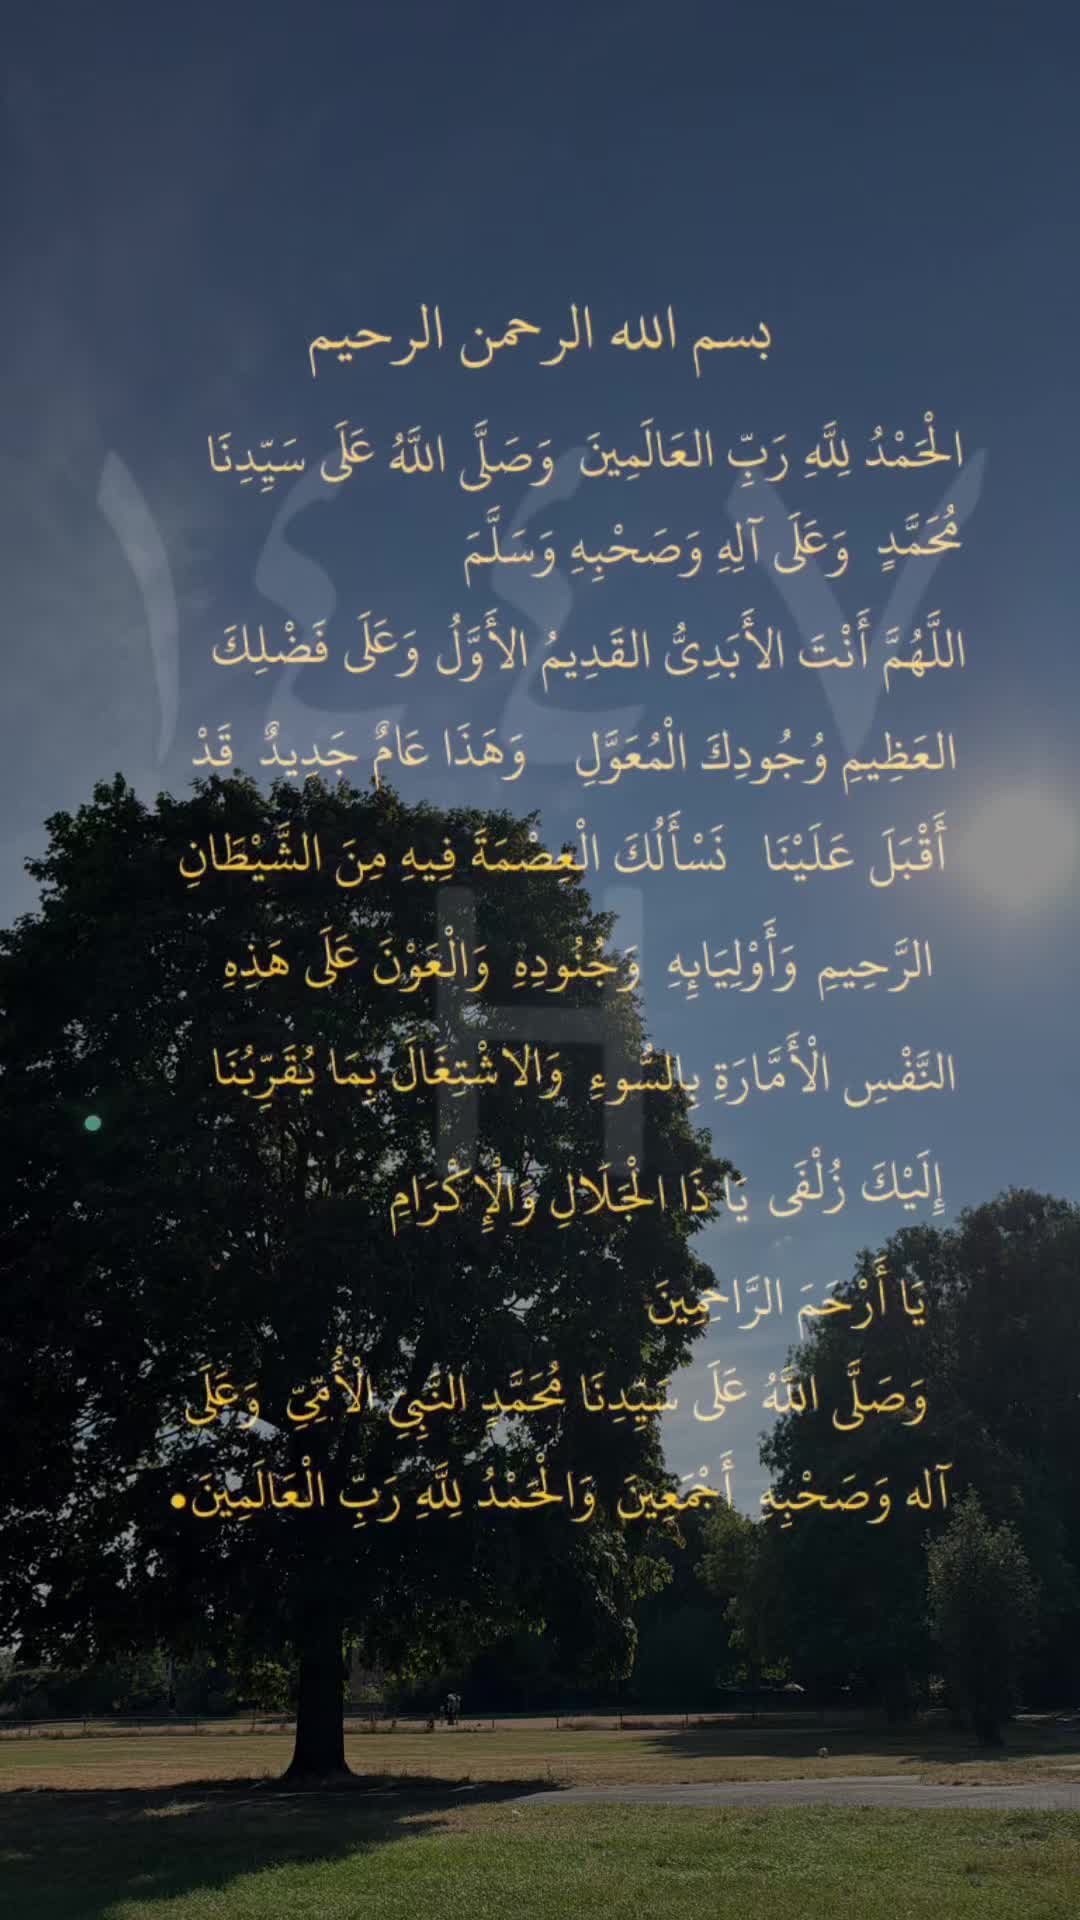 بسم الله الرحمن الرحيم
الْحَمْدُ لِلَّهِ رَبِّ العَالَمِينَ وَصَلَّى اللَّهُ عَلَى سَيِّدِنَا
مُحَمَّدٍ وَعَلَى آلِهِ وَصَحْبِهِ وَسَلَّمَ
اللَّهُمَّ أَنْتَ الأَبَدِىُّ القَدِيمُ الأَوَّلُ وَعَلَى فَضْلِكَ
العَظِيمِ وُجُودِكَ الْمُعَوَّلِ وَهَذَا عَامٌ جَدِيدٌ قَدْ
أَقْبَلَ عَلَيْنَا نَسْأَلُكَ الْعِصْمَةَ فِيهِ مِنَ الشَّيْطَانِ
الرَّحِيمِ وَأَوْلِيَابِهِ وَجُنُودِهِ وَالْعَوْنَ عَلَى هَذِهِ
النَّفْسِ الْأَمَّارَةِ بِالسُّوءِ وَالاشْتِغَالَ بِمَا يُقَرِّبُنَا
إِلَيْكَ زُلْفَى يَا ذَا الْجَلَالِ وَالْإِكْرَامِ
يَا أَرْحَمَ الرَّاحِمِينَ
وَصَلَّى اللَّهُ عَلَى سَيِّدِنَا مُحَمَّدٍ النَّبِيِ الْأُمِّىِّ وَعَلَى
آله وَصَحْبِهِ أَجْمَعِينَ وَالْحَمْدُ لِلَّهِ رَبِّ الْعَالَمِينَ.
١٤٤٧
H